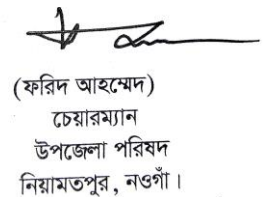 (ফরিদ আহম্মেদ)
চেয়ারম্যান
উপজেলা পরিষদ
নিয়ামতপুর, নওগাঁ।